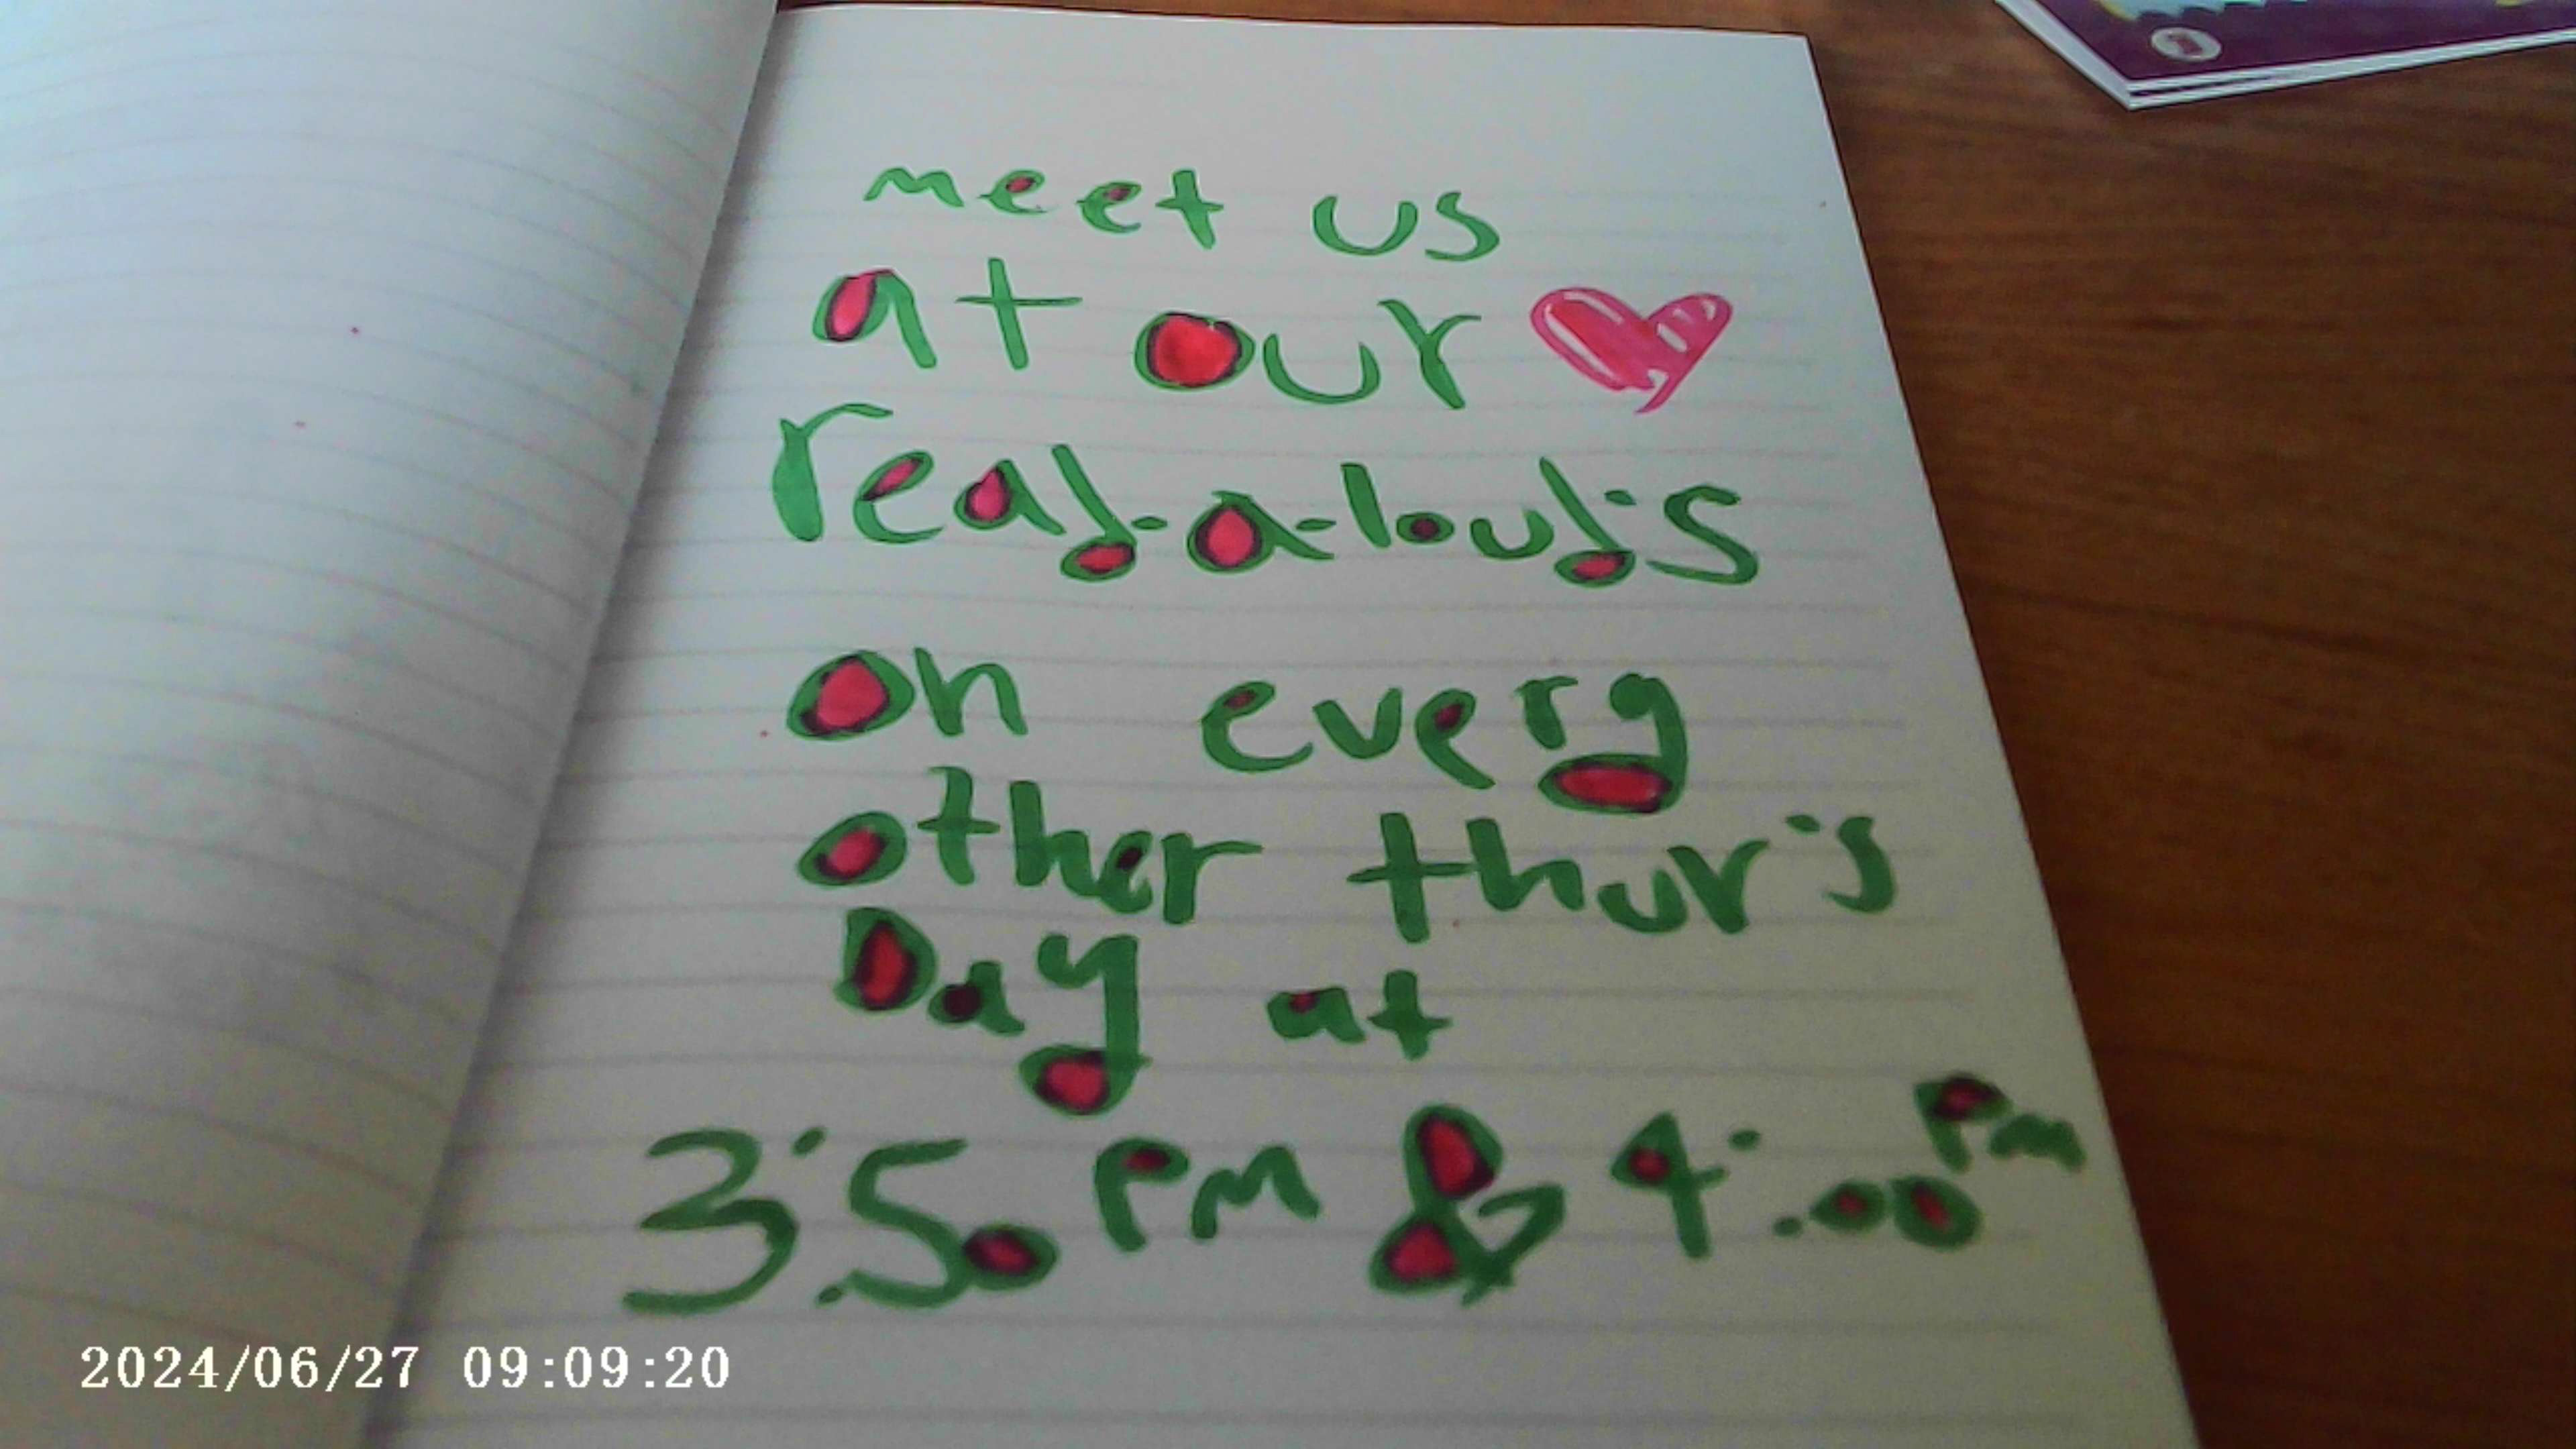 meet us
at our
read-a-loud's
on every
other thur's
Day at
3:50 PM & 4:00 PM
2024/06/27 09:09:20